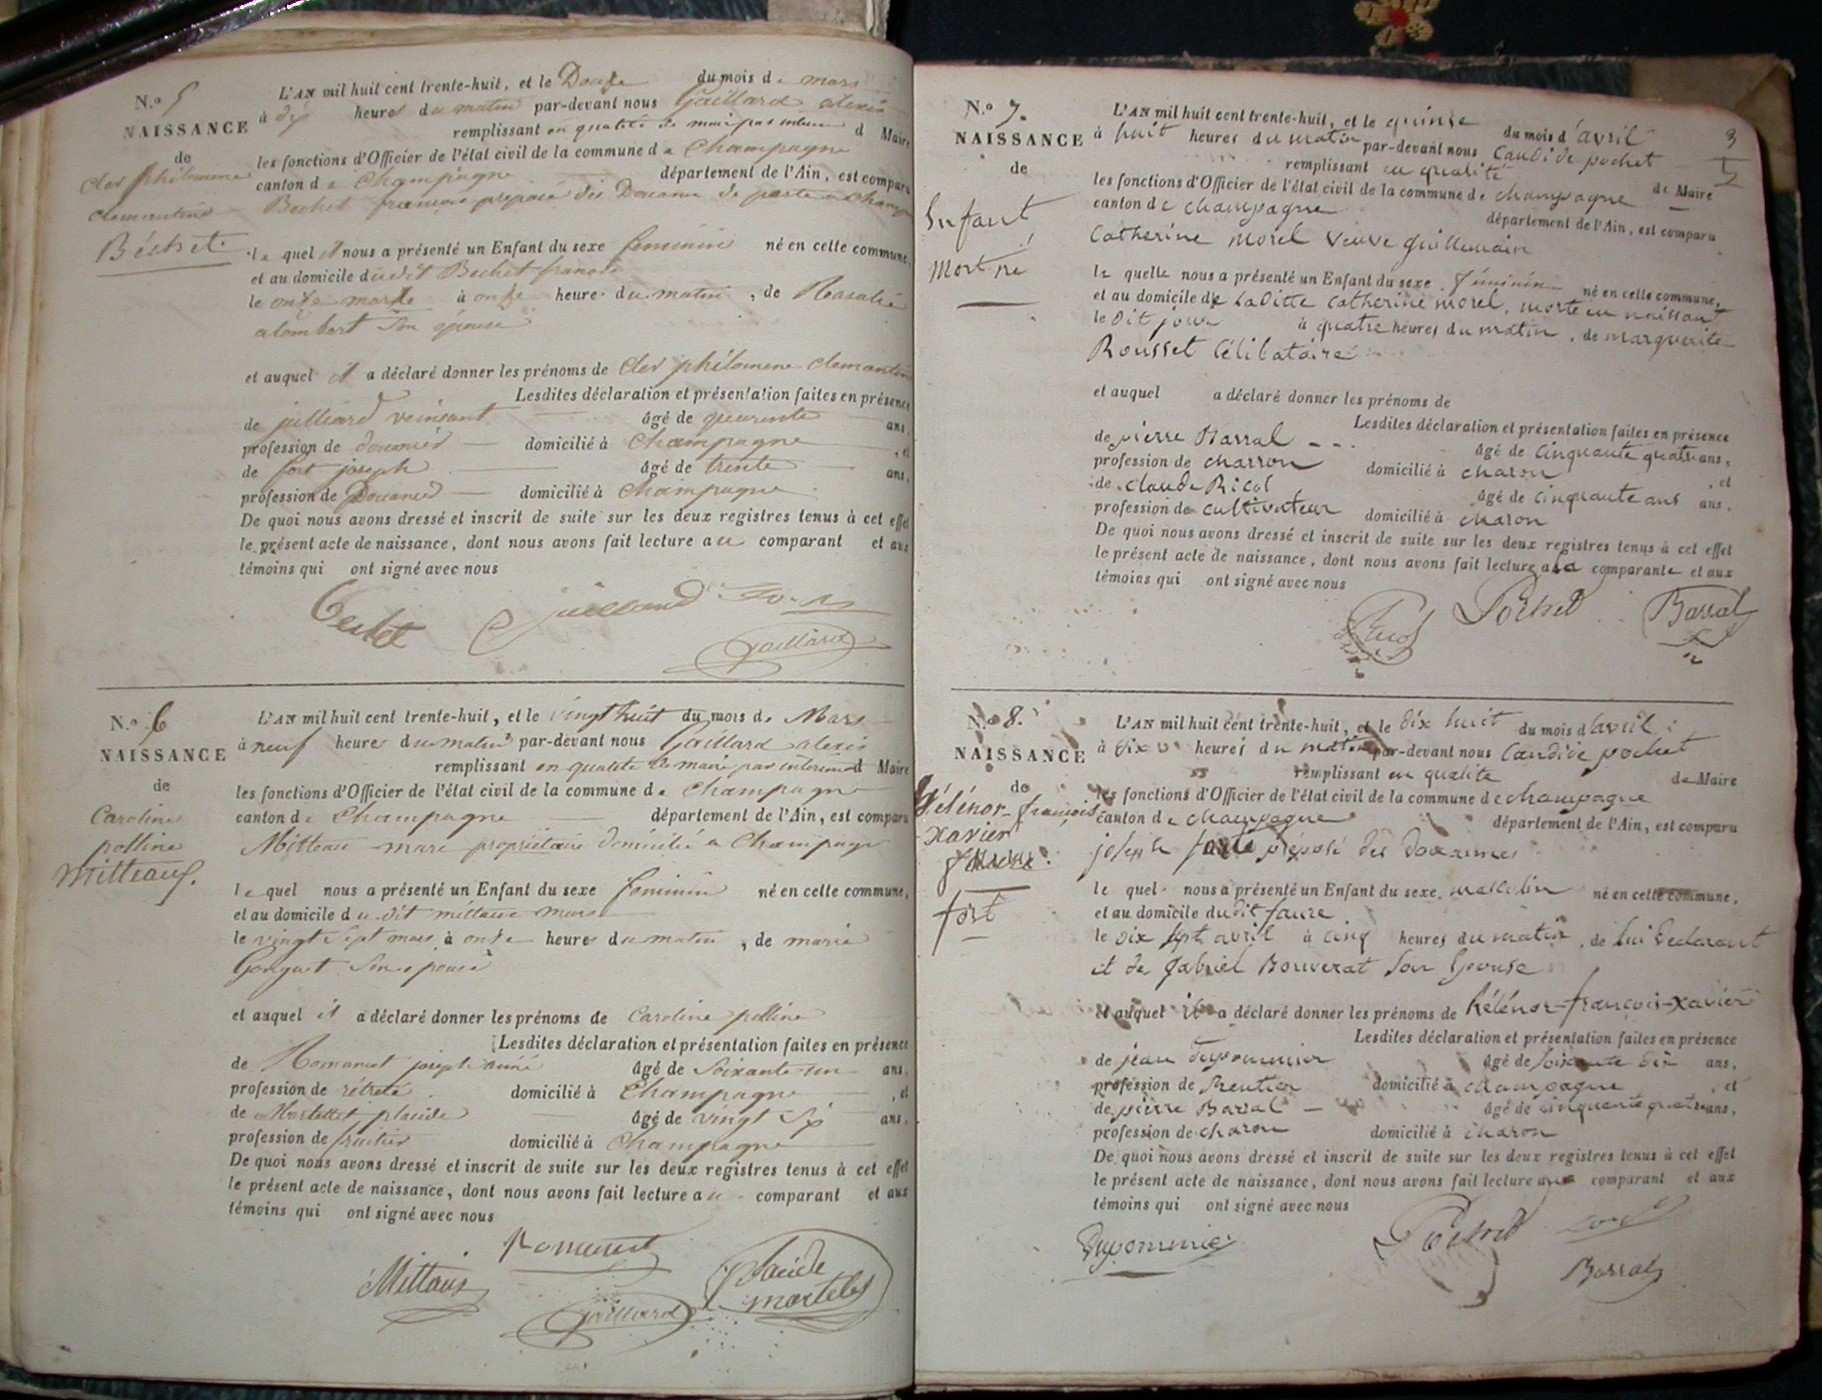 N.o 5
NAISSANCE
de
Cler philomene
clemantine
Béchet.
L'AN mil huit cent trente-huit, et le Douze du mois de mars
à dix heures du matin par-devant nous Gaillard alexis
remplissant en qualité de maire par interim d Maire
les fonctions d'Officier de l'état civil de la commune de Champagne
canton de Champagne département de l'Ain, est comparu
Bechet francois préposé des Douane de poste a Champ
le quel il nous a présenté un Enfant du sexe feminin né en cette commune,
et au domicile dudit Bechet francois
le onze mars à onze heure du matin, de Rosalie
alombert Son épouse
et auquel il a déclaré donner les prénoms de Cler philomene clemantine
Lesdites déclaration et présentation faites en présence
de juilliard veinsant âgé de quarente ans,
profession de douanier domicilié à Champagne, et
de fort joseph âgé de trente ans,
profession de Douanier domicilié à Champagne
De quoi nous avons dressé et inscrit de suite sur les deux registres tenus à cet effet
le présent acte de naissance, dont nous avons fait lecture au comparant et aux
témoins qui ont signé avec nous
Bechet juilliard fort
Gaillard
N.o 6
NAISSANCE
de
Caroline
polline
Mitteaux.
L'AN mil huit cent trente-huit, et le vingt huit du mois de Mars
à neuf heures du matin par-devant nous Gaillard alexis
remplissant en qualité de maire par interim d Maire
les fonctions d'Officier de l'état civil de la commune de Champagne
canton de Champagne département de l'Ain, est comparu
Mitteau marc propriétaire domicilié a Champagne
le quel nous a présenté un Enfant du sexe feminin né en cette commune,
et au domicile dudit mitteau marc
le vingt Sept mars à onze heures du matin, de marie
Gonguet Son epouse
et auquel il a déclaré donner les prénoms de Caroline polline
Lesdites déclaration et présentation faites en présence
de joseph aimé âgé de Soixante-un ans,
profession de rétreté domicilié à Champagne, et
de Martelet placide âgé de vingt Six ans,
profession de domicilié à Champagne
De quoi nous avons dressé et inscrit de suite sur les deux registres tenus à cet effet
le présent acte de naissance, dont nous avons fait lecture au comparant et aux
témoins qui ont signé avec nous
Mittaux placide
Gaillard martelet
3
N.o 7.
NAISSANCE
de
Enfant
Mort né
L'AN mil huit cent trente-huit, et le quinze du mois d'avril
à huit heures du matin par-devant nous Candide pochet
remplissant en qualité de Maire
les fonctions d'Officier de l'état civil de la commune de champagne
canton de champagne département de l'Ain, est comparu
Catherine morel Veuve Guillemain
la quelle nous a présenté un Enfant du sexe féminin né en cette commune,
et au domicile de Laditte Catherine morel, morte en naissant
le dit jour à quatre heures du matin, de marguerite
Rousset Célibataire
et auquel a déclaré donner les prénoms de
Lesdites déclaration et présentation faites en présence
de pierre Barral âgé de Cinquante quatre ans,
profession de charron domicilié à charon, et
de Claude Ricol âgé de cinquante ans ans,
profession de cultivateur domicilié à charon
De quoi nous avons dressé et inscrit de suite sur les deux registres tenus à cet effet
le présent acte de naissance, dont nous avons fait lecture a la comparante et aux
témoins qui ont signé avec nous
Ricol Pochet Barral
N.o 8.
NAISSANCE
de
hélénor-françois
Xavier
fort
L'AN mil huit cent trente-huit, et le dix huit du mois d'avril
à dix heures du matin par-devant nous Candide pochet
remplissant en qualité de Maire
les fonctions d'Officier de l'état civil de la commune de champagne
canton de champagne département de l'Ain, est comparu
joseph préposé des douannes
le quel nous a présenté un Enfant du sexe masculin né en cette commune,
et au domicile dudit faure
le dix sept avril à cinq heures du matin, de lui déclarant
et de gabriel Bouverat Son Epouse
et auquel il a déclaré donner les prénoms de hélénor-françois-xavier
Lesdites déclaration et présentation faites en présence
de jean dupommier âgé de soixante dix ans,
profession de Rentier domicilié à champagne, et
de pierre Barral âgé de cinquante quatre ans,
profession de charon domicilié à charon
De quoi nous avons dressé et inscrit de suite sur les deux registres tenus à cet effet
le présent acte de naissance, dont nous avons fait lecture aux comparant et aux
témoins qui ont signé avec nous
Dupommier Pochet fort
Barral